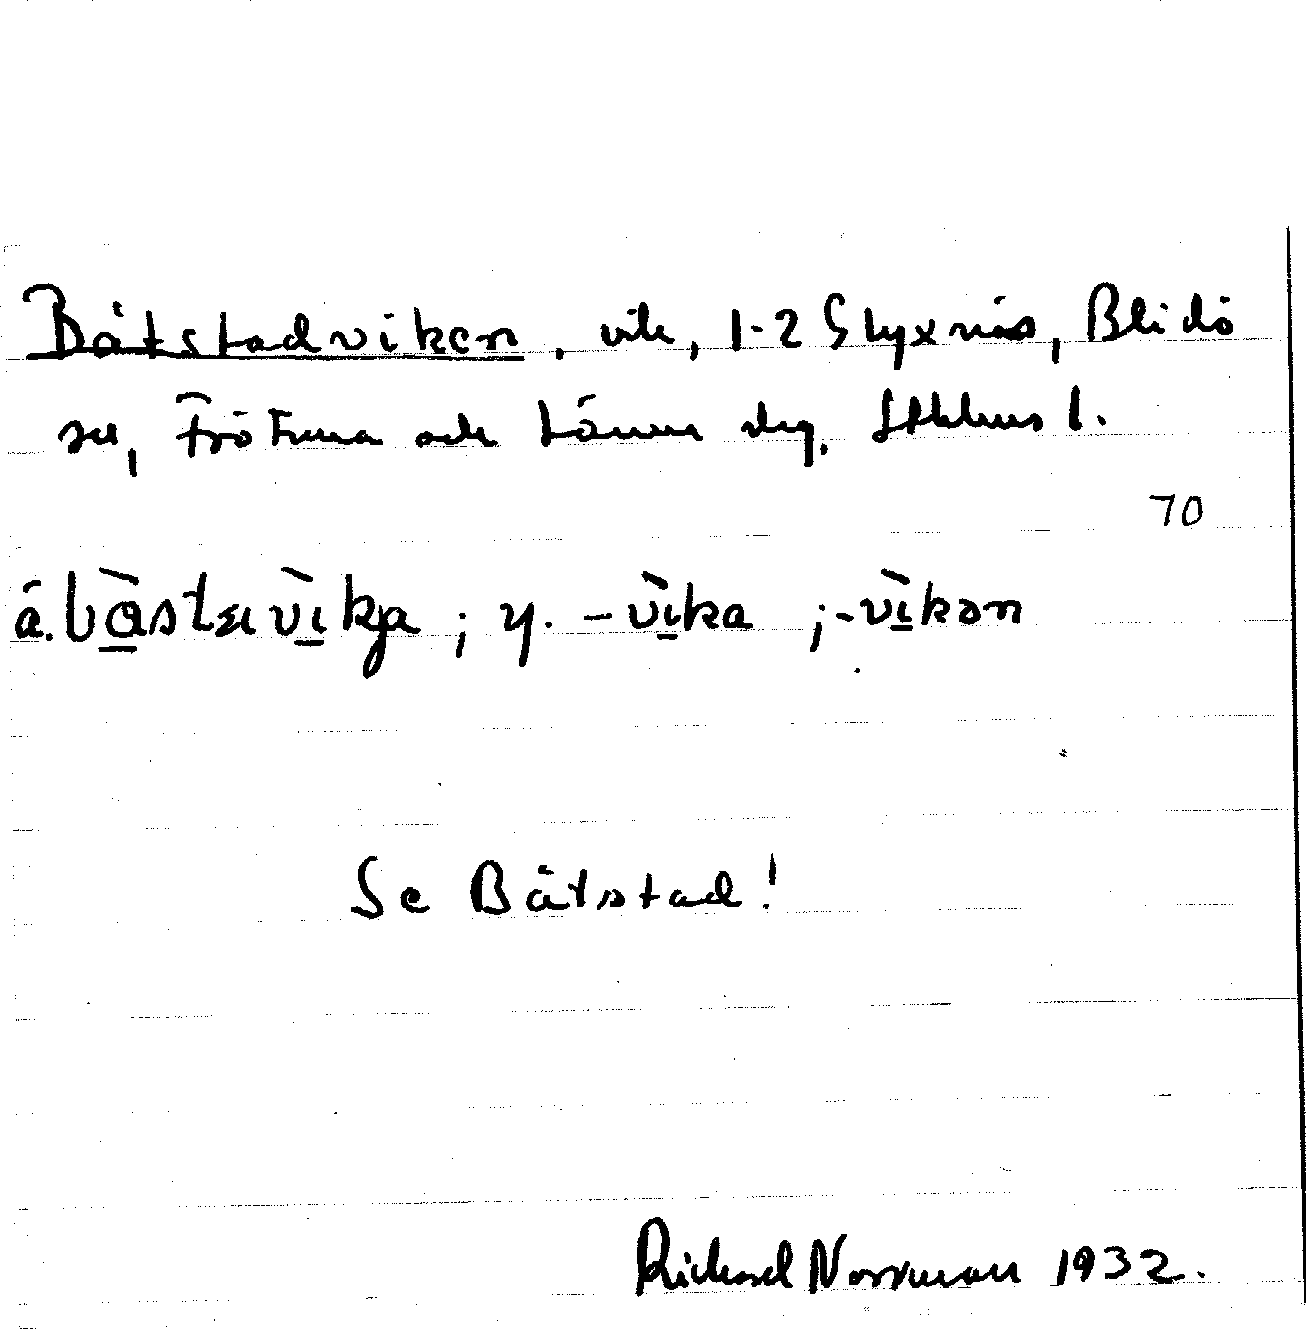 Båtstadviken, vik, 1-2 Styxnäs, Blidö
sn, Frötuna och Länna skg, Sthlms l.
70
ä. bàstavìkja ; y. -vìka ; -vìkən
Se Båtstad!
Richard Norrman 1932.